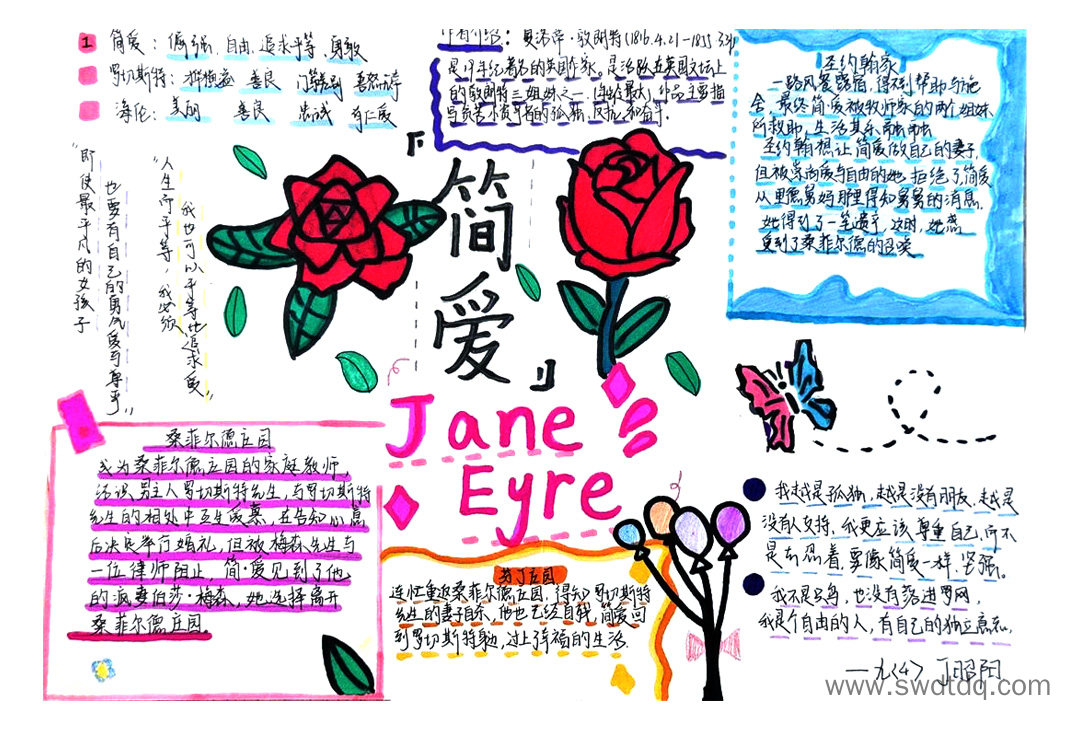 1 简爱：倔强、自由、追求平等、勇敢
罗切斯特：
善良
海伦：美丽 善良 忠诚 有仁爱
作者介绍：夏洛蒂·敦朗特(1816.4.21-1855.3.31)
是19年纪著名的英国作家。是活跃在英国文坛上
的敦朗特三姐妹之一
作品主要指
写贫苦小资产者的孤独、反抗和奋斗.
圣约翰家
一路风餐露宿，得到帮助与施
舍，最终简爱被牧师家的两个姐妹
所救助，生活其乐融融
圣约翰想让简爱做自己的妻子，
但被崇尚爱与自由的她拒绝了，简爱
从里德舅妈那里得知舅舅的消息，
她得到了一笔遗产，这时，她感
觉到了桑菲尔德的召唤
"即使最平凡的女孩子
也要有自己的勇气爱与尊严"
"人生而平等，我必须
我也可以平等地追求爱"
『简爱』
Jane
Eyre
桑菲尔德庄园
成为桑菲尔德庄园的家庭教师，
结识男主人罗切斯特先生，与罗切斯特
先生的相处中互生爱慕，在告知心意
后决定举行婚礼，但被梅森先生与
一位律师阻止，简·爱见到了他
的疯妻伯莎·梅森，她选择离开
桑菲尔德庄园。
芬丁庄园
连忙重返桑菲尔德庄园，得知罗切斯特
先生的妻子自杀，他也已经自残，简爱回
到罗切斯特身边，过上幸福的生活.
我越是孤独，越是没有朋友，越是
没有人支持，我更应该尊重自己，而不
是去忍着，要像简爱一样，坚强。
我不是只鸟，也没有落进罗网，
我是个自由的人，有自己的独立意志。
——九<4> 丁昭阳
www.swdtdq.com